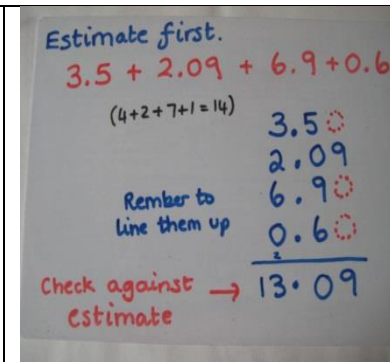 Estimate first.
3.5 + 2.09 + 6.9 + 0.6
(4+2+7+1=14)
3.50
2.09
Rember to
line them up
6.90
0.60
2
Check against
estimate
→ 13.09